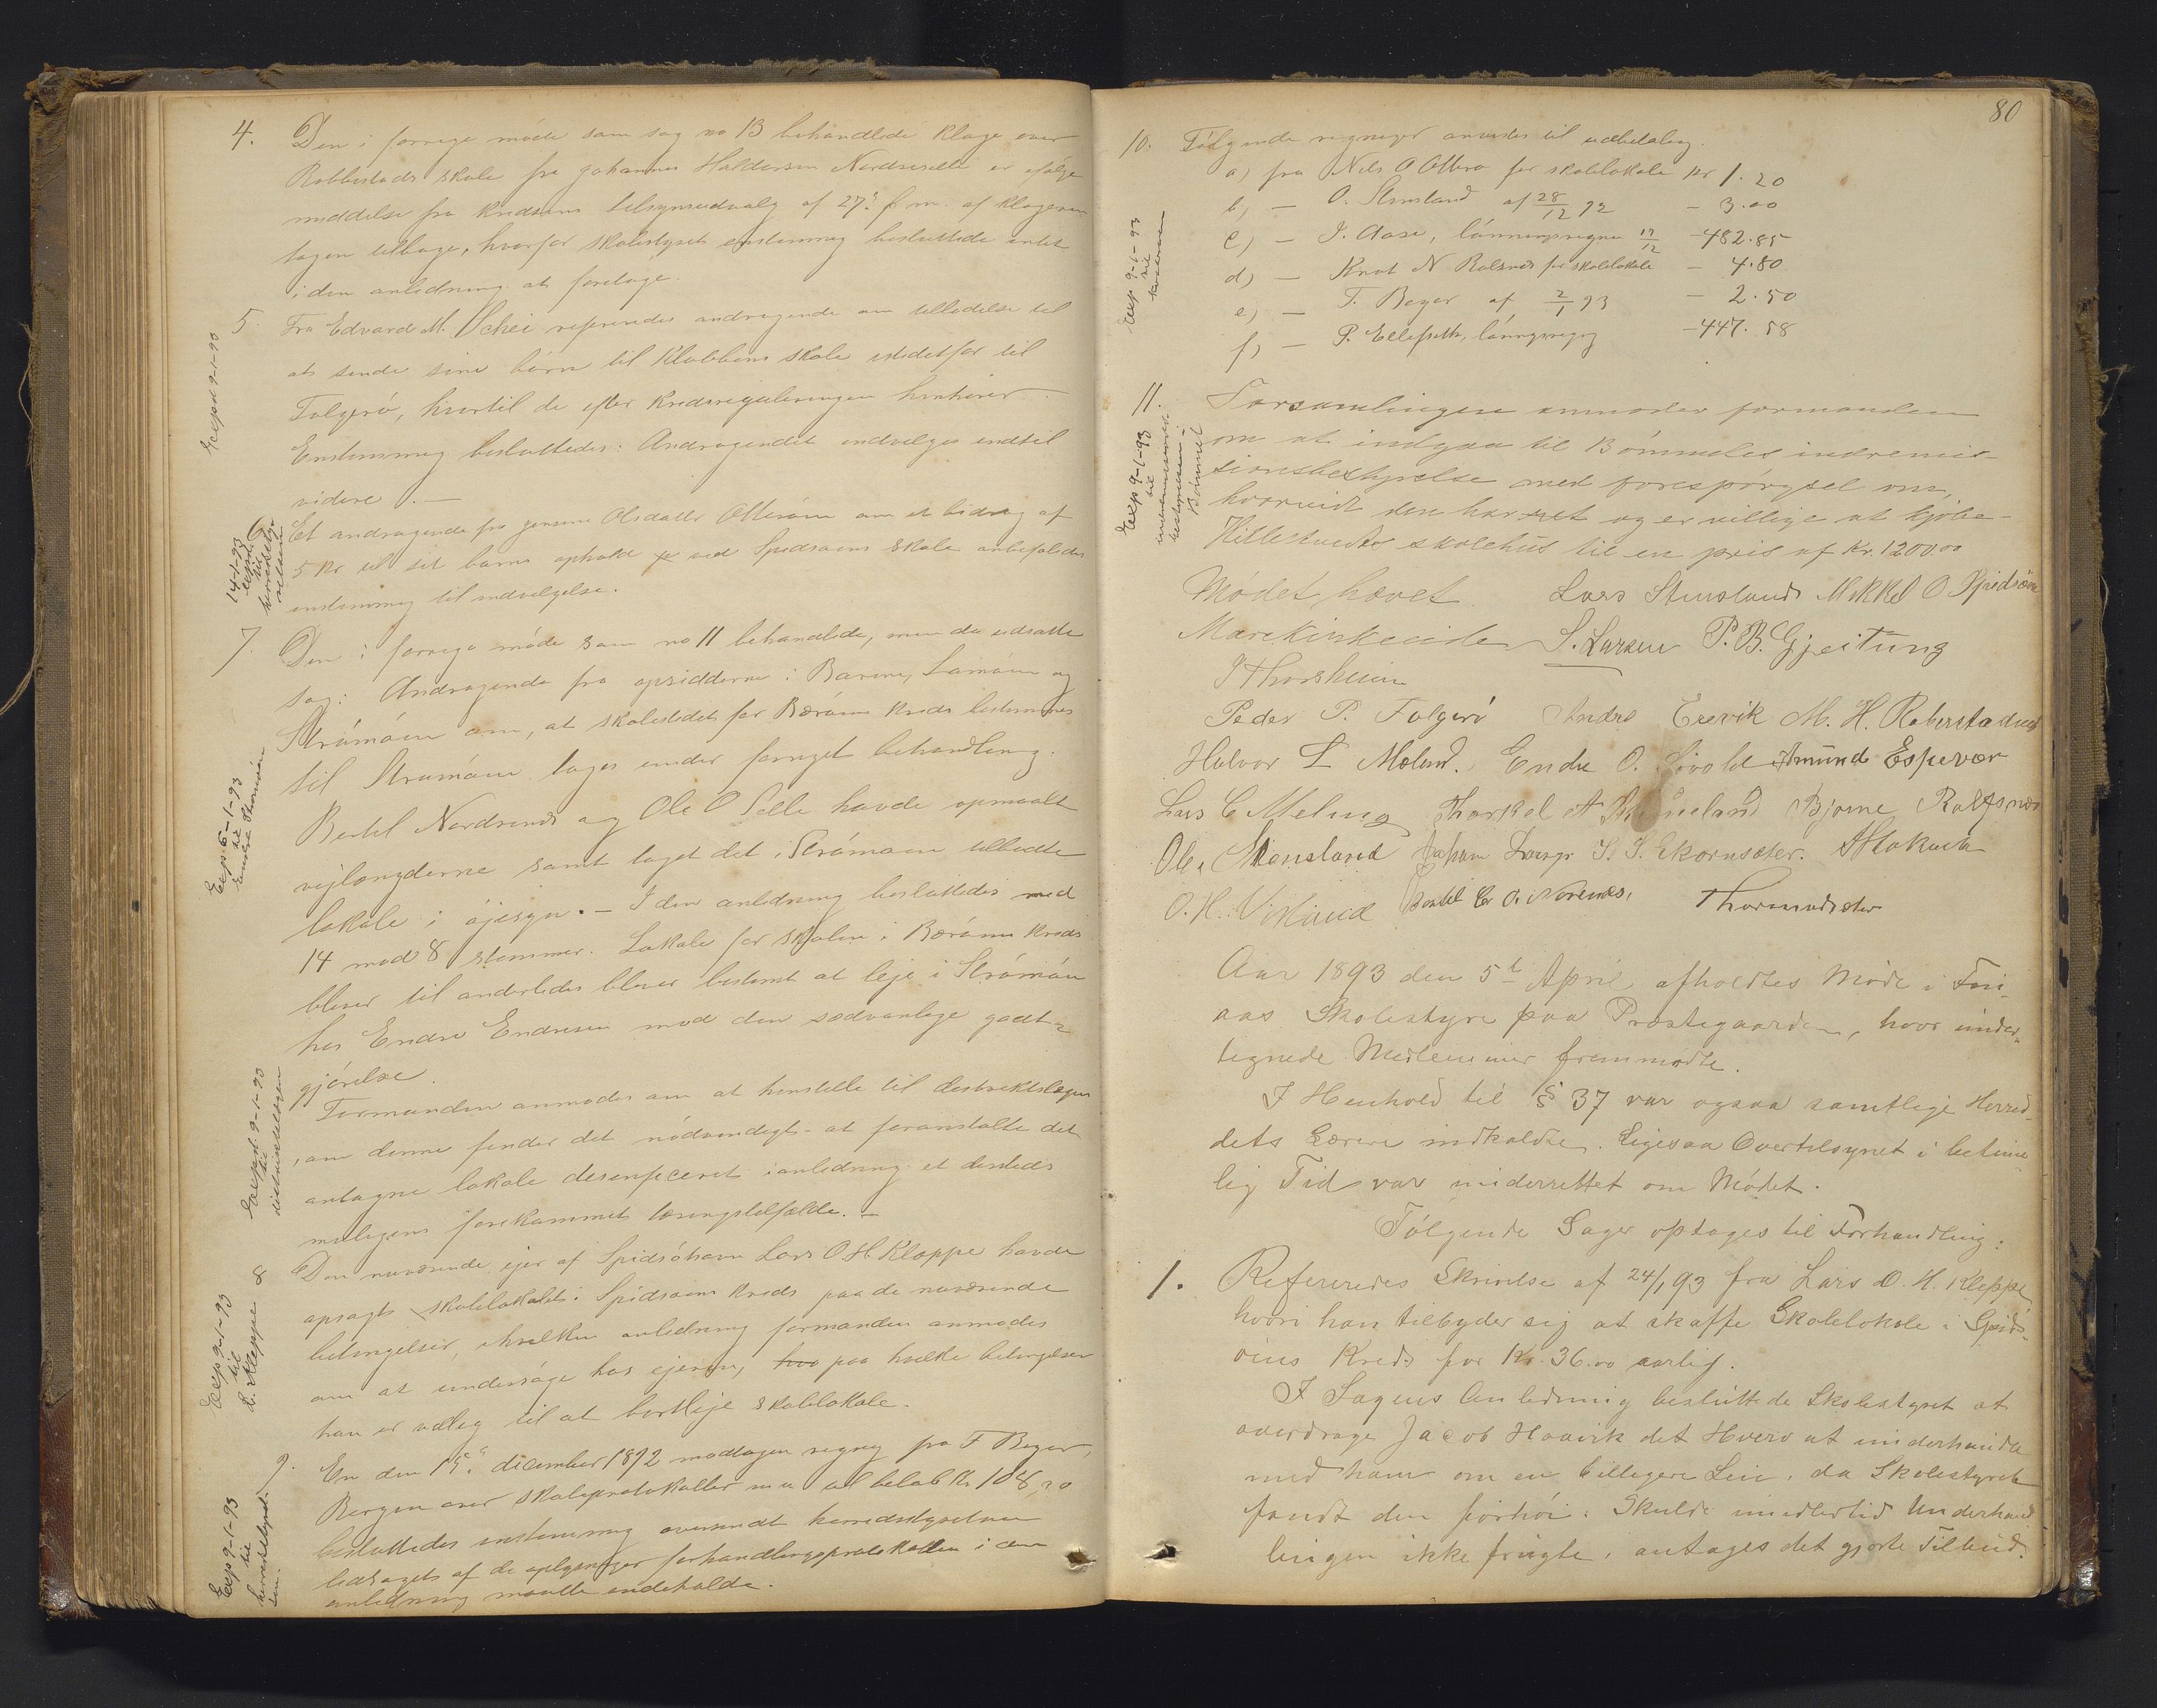 4. Den i forrige møde som sag no 13 behandlede klage over
Robbestads skole fra Johannes Haldorsen Nordreselle er ifølge
meddelse fra kredsens tilsynsudvalg af 27. f. m. af klageren
tagen tilbage, hvorfor skolestyret enstemmig besluttede intet
i den anledning at foretage.
Exped 9-1-93
5. Fra Edvard M. Schei refereredes andragende om tilladelse til
at sende sine børn til Klubbens skole istedetfor til
Folgerö, hvortil de efter kredsreguleringen henhører.
Enstemmig besluttedes: Andragendet indvilges indtil
videre. —
14-1-93
exped.
til
herredsstyrelsen
6. Et andragende fra Olsdatter om et bidrag af
5 kr til sit barns ophold ved Spidsøens skole anbefaledes
enstemmig til indvilgelse.
7. Den i forrige møde som no 11 behandlede, men da udsatte
sag: Andragende fra opsidderne i Bærøen, og
Strömöen om, at skolestedet for Bærøens kreds bestemmes
til Strømøen toges under fornyet behandling.
Exp 6-1-93
til
Endre Strömöen
Bertel Nordrenes og Ole O Selle havde opmaalt
vejlængderne samt taget det i Strömöen tilbudte
lokale i øjesyn. — I den anledning besluttedes med
14 mod 8 stemmer: Lokale for skolen i Bærøens kreds
bliver til anderledes bliver bestemt at leje i Strömöen
hos Endre Endresen mod den sædvanlige godt-
gjørelse.
Exped. 9-1-93
til
distriktslægen
Formanden anmodes om at henstille til destriktslægen
, om denne finder det nødvendigt at foranstalte det
antagne lokale desinficeret i anledning et dersteds
muligens forekommet tæringstilfælde. —
Exp 9-1-93
til
L. Kleppe
8 Den nuværende ejer af Spidsøhavn Lars O H Kleppe havde
opsagt skolelokalet i Spidsøens kreds paa de nuværende
betingelser, i hvilken anledning formanden anmodes
om at undersøge hos ejeren, hvo paa hvilke betingelser
han er villig til at bortleje skolelokale.
Exp 9-1-93
til
herredsstyrelsen.
9. En den 15. december 1892 modtagen regning fra F Beyer,
Bergen over skoleprotokoller m. m. til beløb Kr 108,20
besluttedes enstemmig oversendt herredsstyrelsen
ledsaget af de oplysninger forhandlingsprotokollen i den
anledning maatte indeholde.
80
10. Følgende regninger anvistes til udbetaling.
Exp 9-1-93
til
kassereren
a) fra Nils O Ottero for skolelokale kr 1.20
b) — O. Stensland af 28/12 92 — 3.00
c) — J. Aase, lønningsregning 17/12 — 482.85
d) — Knut N Rolsnes for skolelokale — 4.80
e) — F. Beyer af 2/1 93 — 2.50
f) — P. Ellefseth, lønningsregning — 447.58
Exp 9-1-93
til
indremissions-
bestyrelsen i
Bømmel
11. Forsamlingen anmoder formanden
om at indgaa til Bömmeles indremis-
sionsbestyrelse med forespørgsel om,
hvorvidt den har ret og er villige at kjøbe
Hillestvedts skolehus til en pris af Kr. 1200.00
Mødet hævet. Lars Stensland Mikkel O Spidsöen
Mare S. Larsen P. B. Gjeitung
J Thorsheim
Peder P. Folgerö Andrs Erevik M. H. Roberstadvik
Halvor L Moland. Endre O. Amund Espevær
Lars C Meling Thorkel A Bjorne Rolfsnes
Ole Stensland Johan S. S. Ekornsæter. A Hakuch
O. H. Visland Bertel Er O. Norenes, Thormodsæter
Aar 1893 den 5te April afholdtes Møde i Fin-
aas Skolestyre paa Præstegaarden, hvor under-
tegnede Medlemmer fremmødte.
I Henhold til § 37 var ogsaa samtlige Herred-
dets Lærere indkaldte. Ligesaa Overtilsynet i betime-
lig Tid var underrettet om Mødet.
Følgende Sager optoges til Forhandling:
1. Refereredes Skrivelse af 24/1 93 fra Lars O. H. Kleppe
hvori han tilbyder sig at skaffe Skolelokale i Spids-
öens Kreds for Kr. 36.00 aarlig.
I Sagens Anledning besluttede Skolestyret at
overdrage Jacob Haavik det Hverv at underhandle
med ham om en billigere Leie, da Skolestyret
fandt den forhøi. Skulde imidlertid Underhand
lingen ikke frugte, antages det gjorte Tilbud.